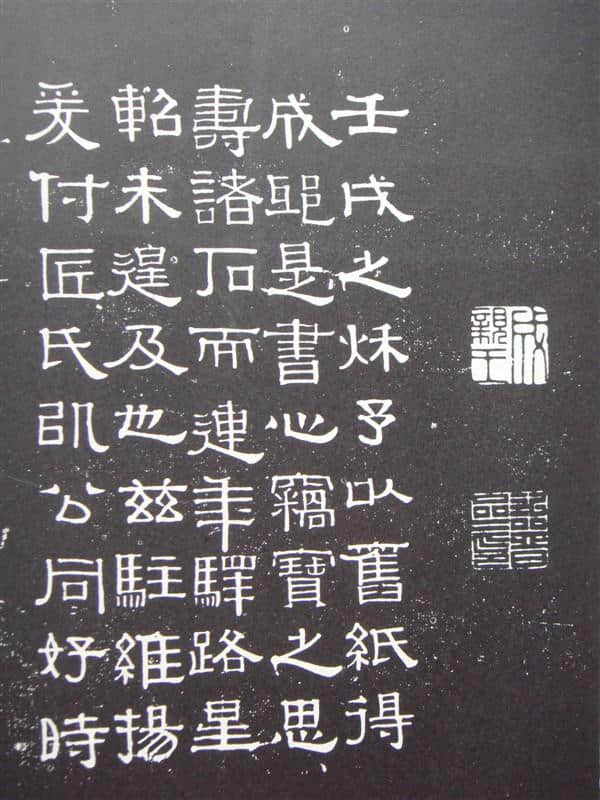 成親王
壬戌之秌予以舊紙得
成邸是書心竊寶之思
壽諸石而連年驛路星
軺未遑及也兹駐維揚
爰付匠氏以公同好時